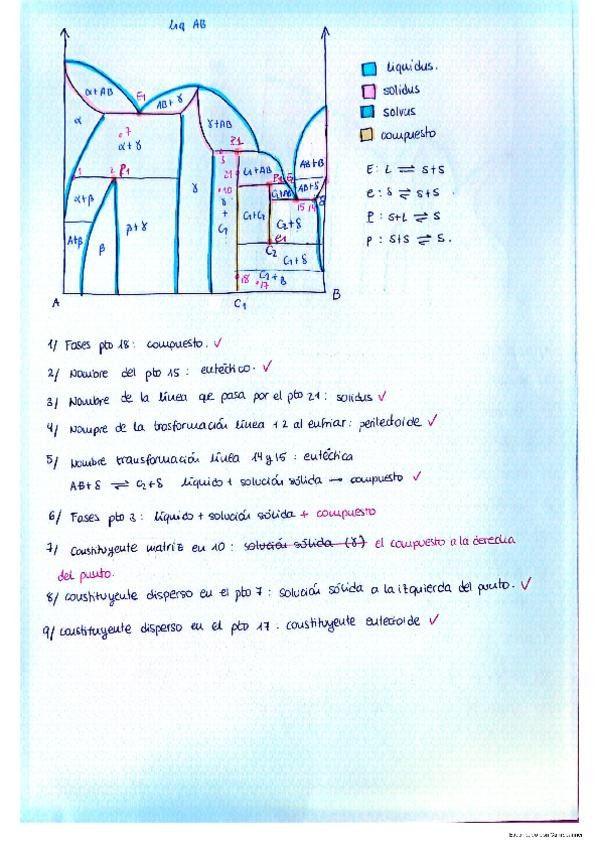 Liq AB
α+AB
E1
AB+γ
γ+AB
α
.7
α+γ
P1
3
21
C1+AB
AB+B
P2
C1+AB
AB+δ
δ
1
2 p1
.10
γ
γ
+
C1
15 14
α+β
C1+C2
C2+δ
A+β
β
β+γ
e1
C2
C1+δ
18
C2+B
.17
A
C1
B
liquidus.
solidus
solvus
compuesto
E: L ⇌ S+S
e: S ⇌ S+S .
P: S+L ⇌ S
p: S+S ⇌ S.
1/ Fases pto 18: compuesto. ✓
2/ Nombre del pto 15: eutéctico. ✓
3/ Nombre de la línea que pasa por el pto 21: solidus ✓
4/ Nompre de la trasformación línea 12 al enfriar: peritectoide ✓
5/ Nombre transformación línea 14 y 15: eutéctica
AB+δ ⇌ C2+δ líquido + solución sólida → compuesto ✓
6/ Fases pto 3: líquido + solución sólida + compuesto
7/ Constituyente matriz en 10: solución sólida (γ) el compuesto a la derecha
del punto.
8/ constituyente disperso en el pto 7: solución sólida a la izquierda del punto. ✓
9/ constituyente disperso en el pto 17: constituyente eutectoide ✓